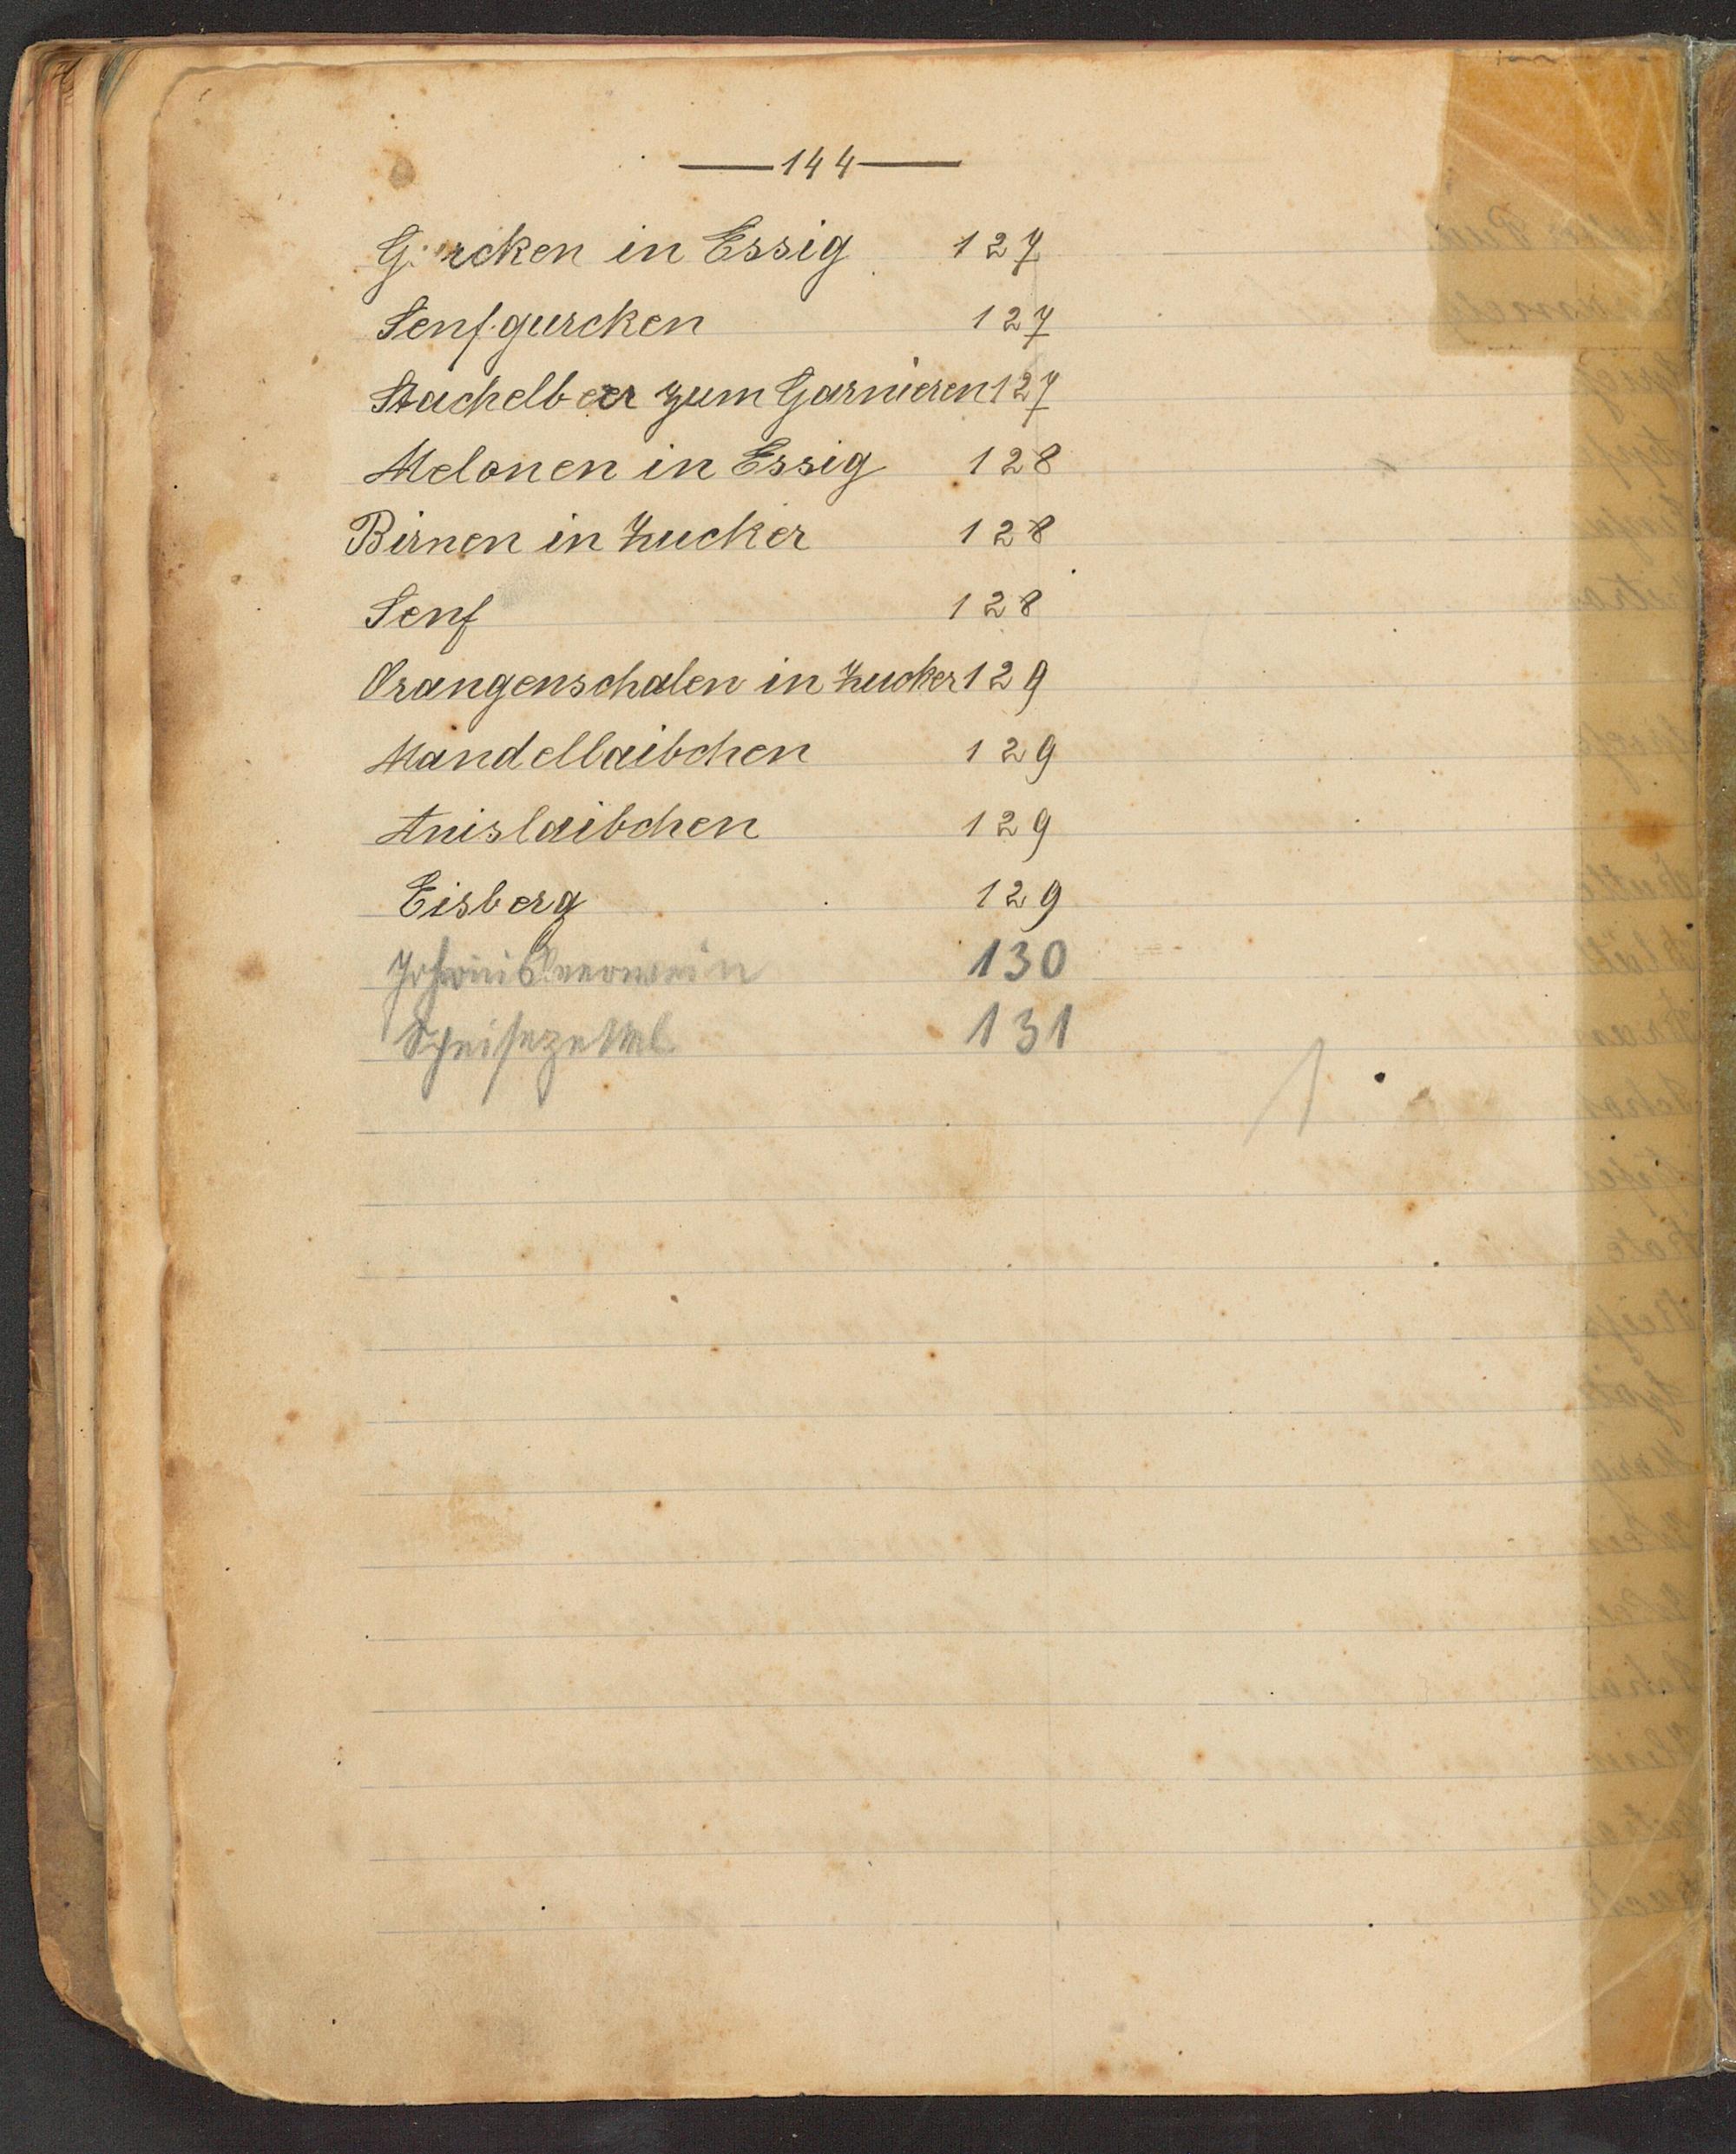 — 144 —
Gurcken in Essig 127
Senfgurcken 127
Stachelbeer zum Garnieren 127
Melonen in Essig 128
Birnen in Zucker 128
Senf 128
Orangenschalen in Zucker 129
Mandellaibchen 129
Anislaibchen 129
Eisberg 129
Johannisbeerwein 130
Speisezettel 131